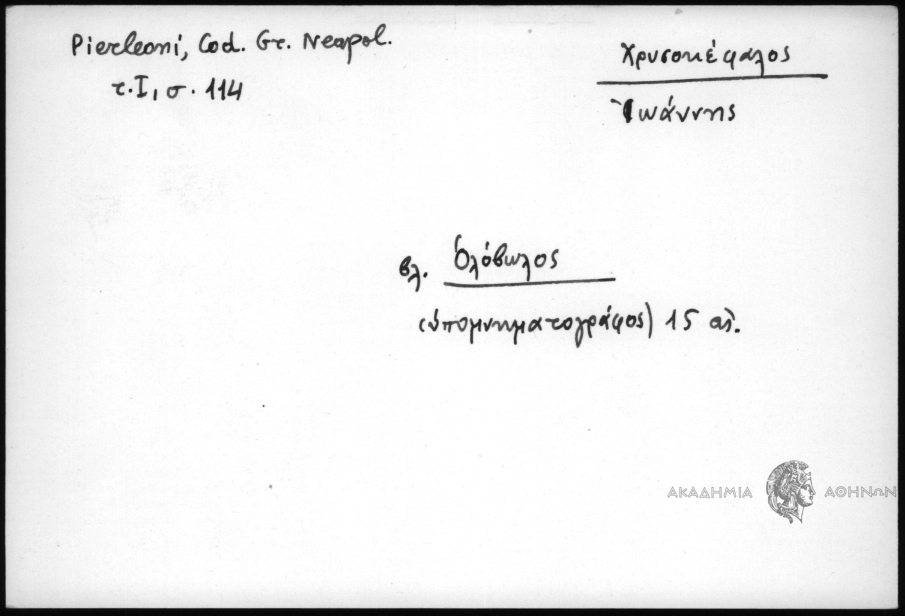 Pierleoni, Cod. Gr. Neapol.
τ. I, σ. 114
Χρυσοκέφαλος
Ἰωάννης
βλ. Ὁλόβωλος
(ὑπομνηματογράφος) 15 αἰ.
ΑΚΑΔΗΜΙΑ ΑΘΗΝΩΝ